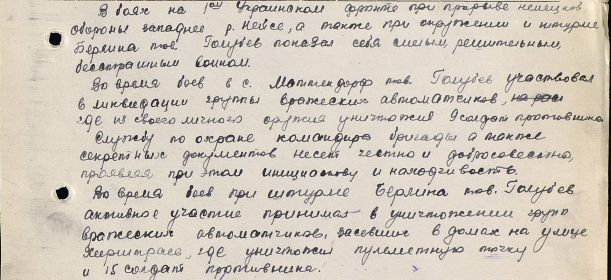 В боях на 1ом Украинском фронте при прорыве немецкой
обороны западнее р. Нейсе, а также при окружении и штурме
Берлина тов. Голубев показал себя смелым, решительным,
бесстрашным воином.
Во время боев в с. Маттендорф тов. Голубев участвовал
в ликвидации группы вражеских автоматчиков,
где из своего личного оружия уничтожил 9 солдат противника.
Службу по охране командира бригады а также
секретных документов несет честно и добросовестно,
проявляя при этом инициативу и находчивость.
Во время боев при штурме Берлина тов. Голубев
активное участие принимал в уничтожении групп
вражеских автоматчиков, засевших в домах на улице
где уничтожил пулеметную точку
и 15 солдат противника.